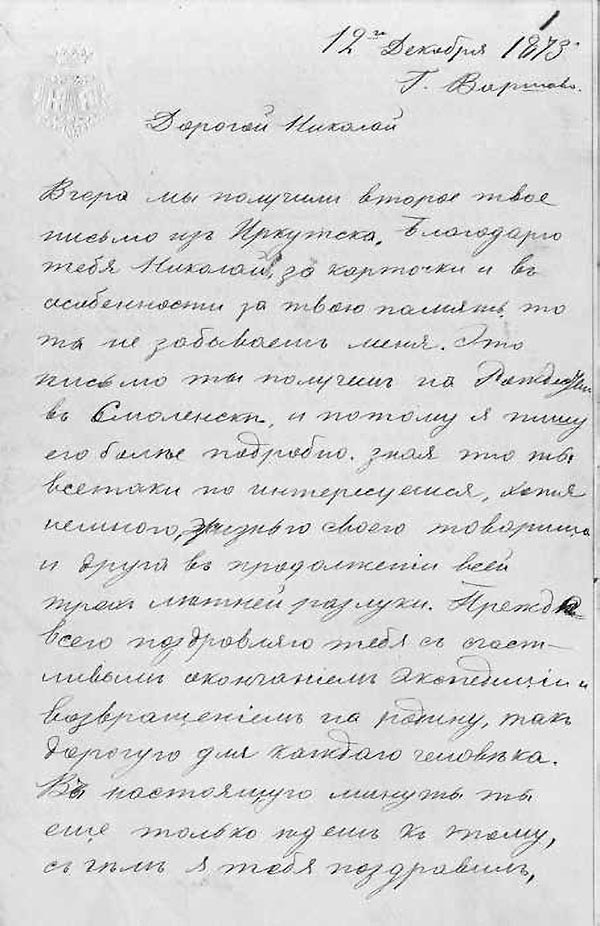 1
12го Декабря 1873
Г. Варшава.
Дорогой Николай
Вчера мы получили второе твое
письмо изъ Иркутска. Благодарю
тебя Николай, за карточки и въ
особенности за твою память, что
ты не забываешь меня. Это
письмо ты получишь на
въ Смоленски, и потому я пишу
его болѣе подробно. зная что ты
всетаки по интересуешся, хотя
немного, жизнью своего товарища
и друга въ продолженіи всей
трех лѣтней разлуки. Прежде
всего поздравляю тебя съ счаст-
ливымъ окончаніемъ экспедиціи и
возвращеніемъ на родину, такъ
дорогую для каждаго человѣка.
Въ настоящую минуту ты
еще только едешь къ тому,
съ чѣмъ я тебя поздравилъ,